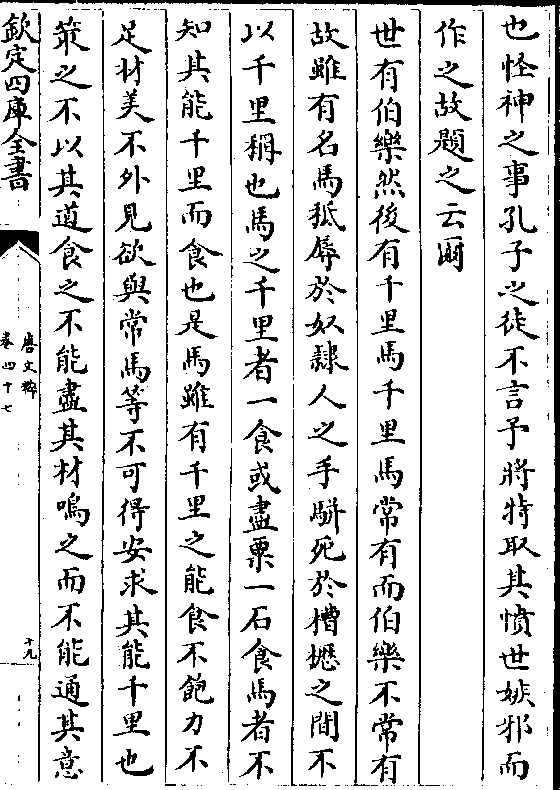 也怪神之事孔子之徒不言予將特取其憤世嫉邪而
作之故題之云爾
世有伯樂然後有千里馬千里馬常有而伯樂不常有
故雖有名馬秪辱於奴隸人之手駢死於槽櫪之間不
以千里稱也馬之千里者一食或盡粟一石食馬者不
知其能千里而食也是馬雖有千里之能食不飽力不
足材美不外見欲與常馬等不可得安求其能千里也
策之不以其道食之不能盡其材鳴之而不能通其意
欽定四庫全書
唐文粹
卷四十七
十九